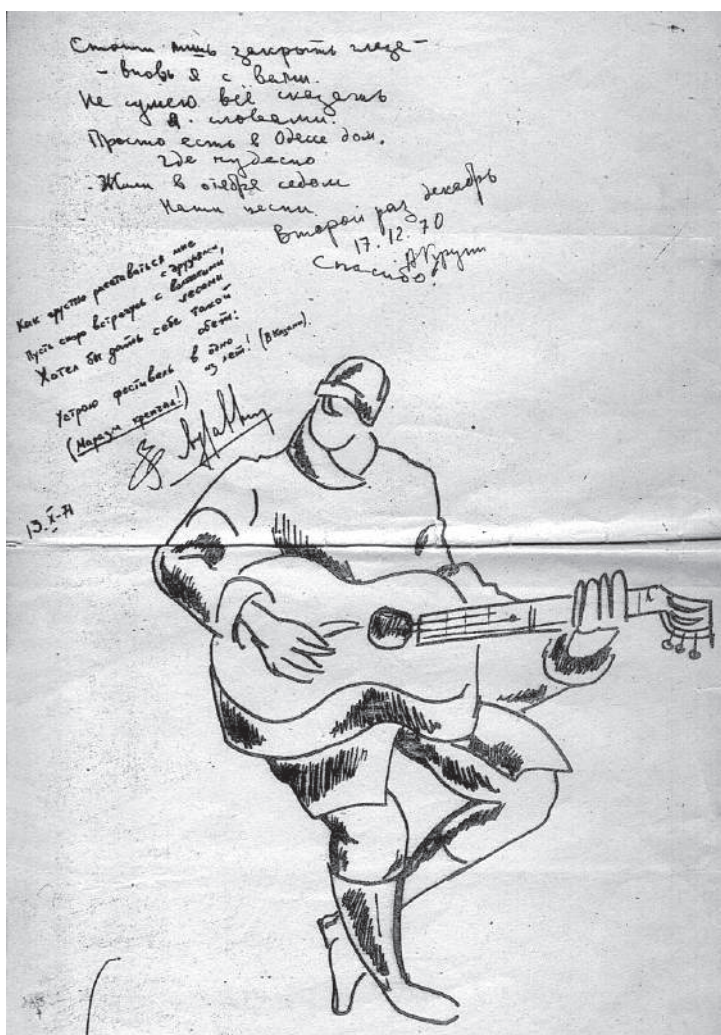 Стоит лишь закрыть глаза –
– вновь я с вами.
Не сумею всё сказать
я словами.
Просто есть в Одессе дом,
где чудесно
Жили в октябре седом
Наши песни.
Второй раз декабрь
17.12.70
Спасибо!
Как грустно расставаться мне
с друзьями,
Пусть скоро встречусь с
песнями
Хотел бы дать себе такой
обет:
Устрою фестиваль в одно
из лет! (В Казани).
(Маразм крепчал!)
13.X-71